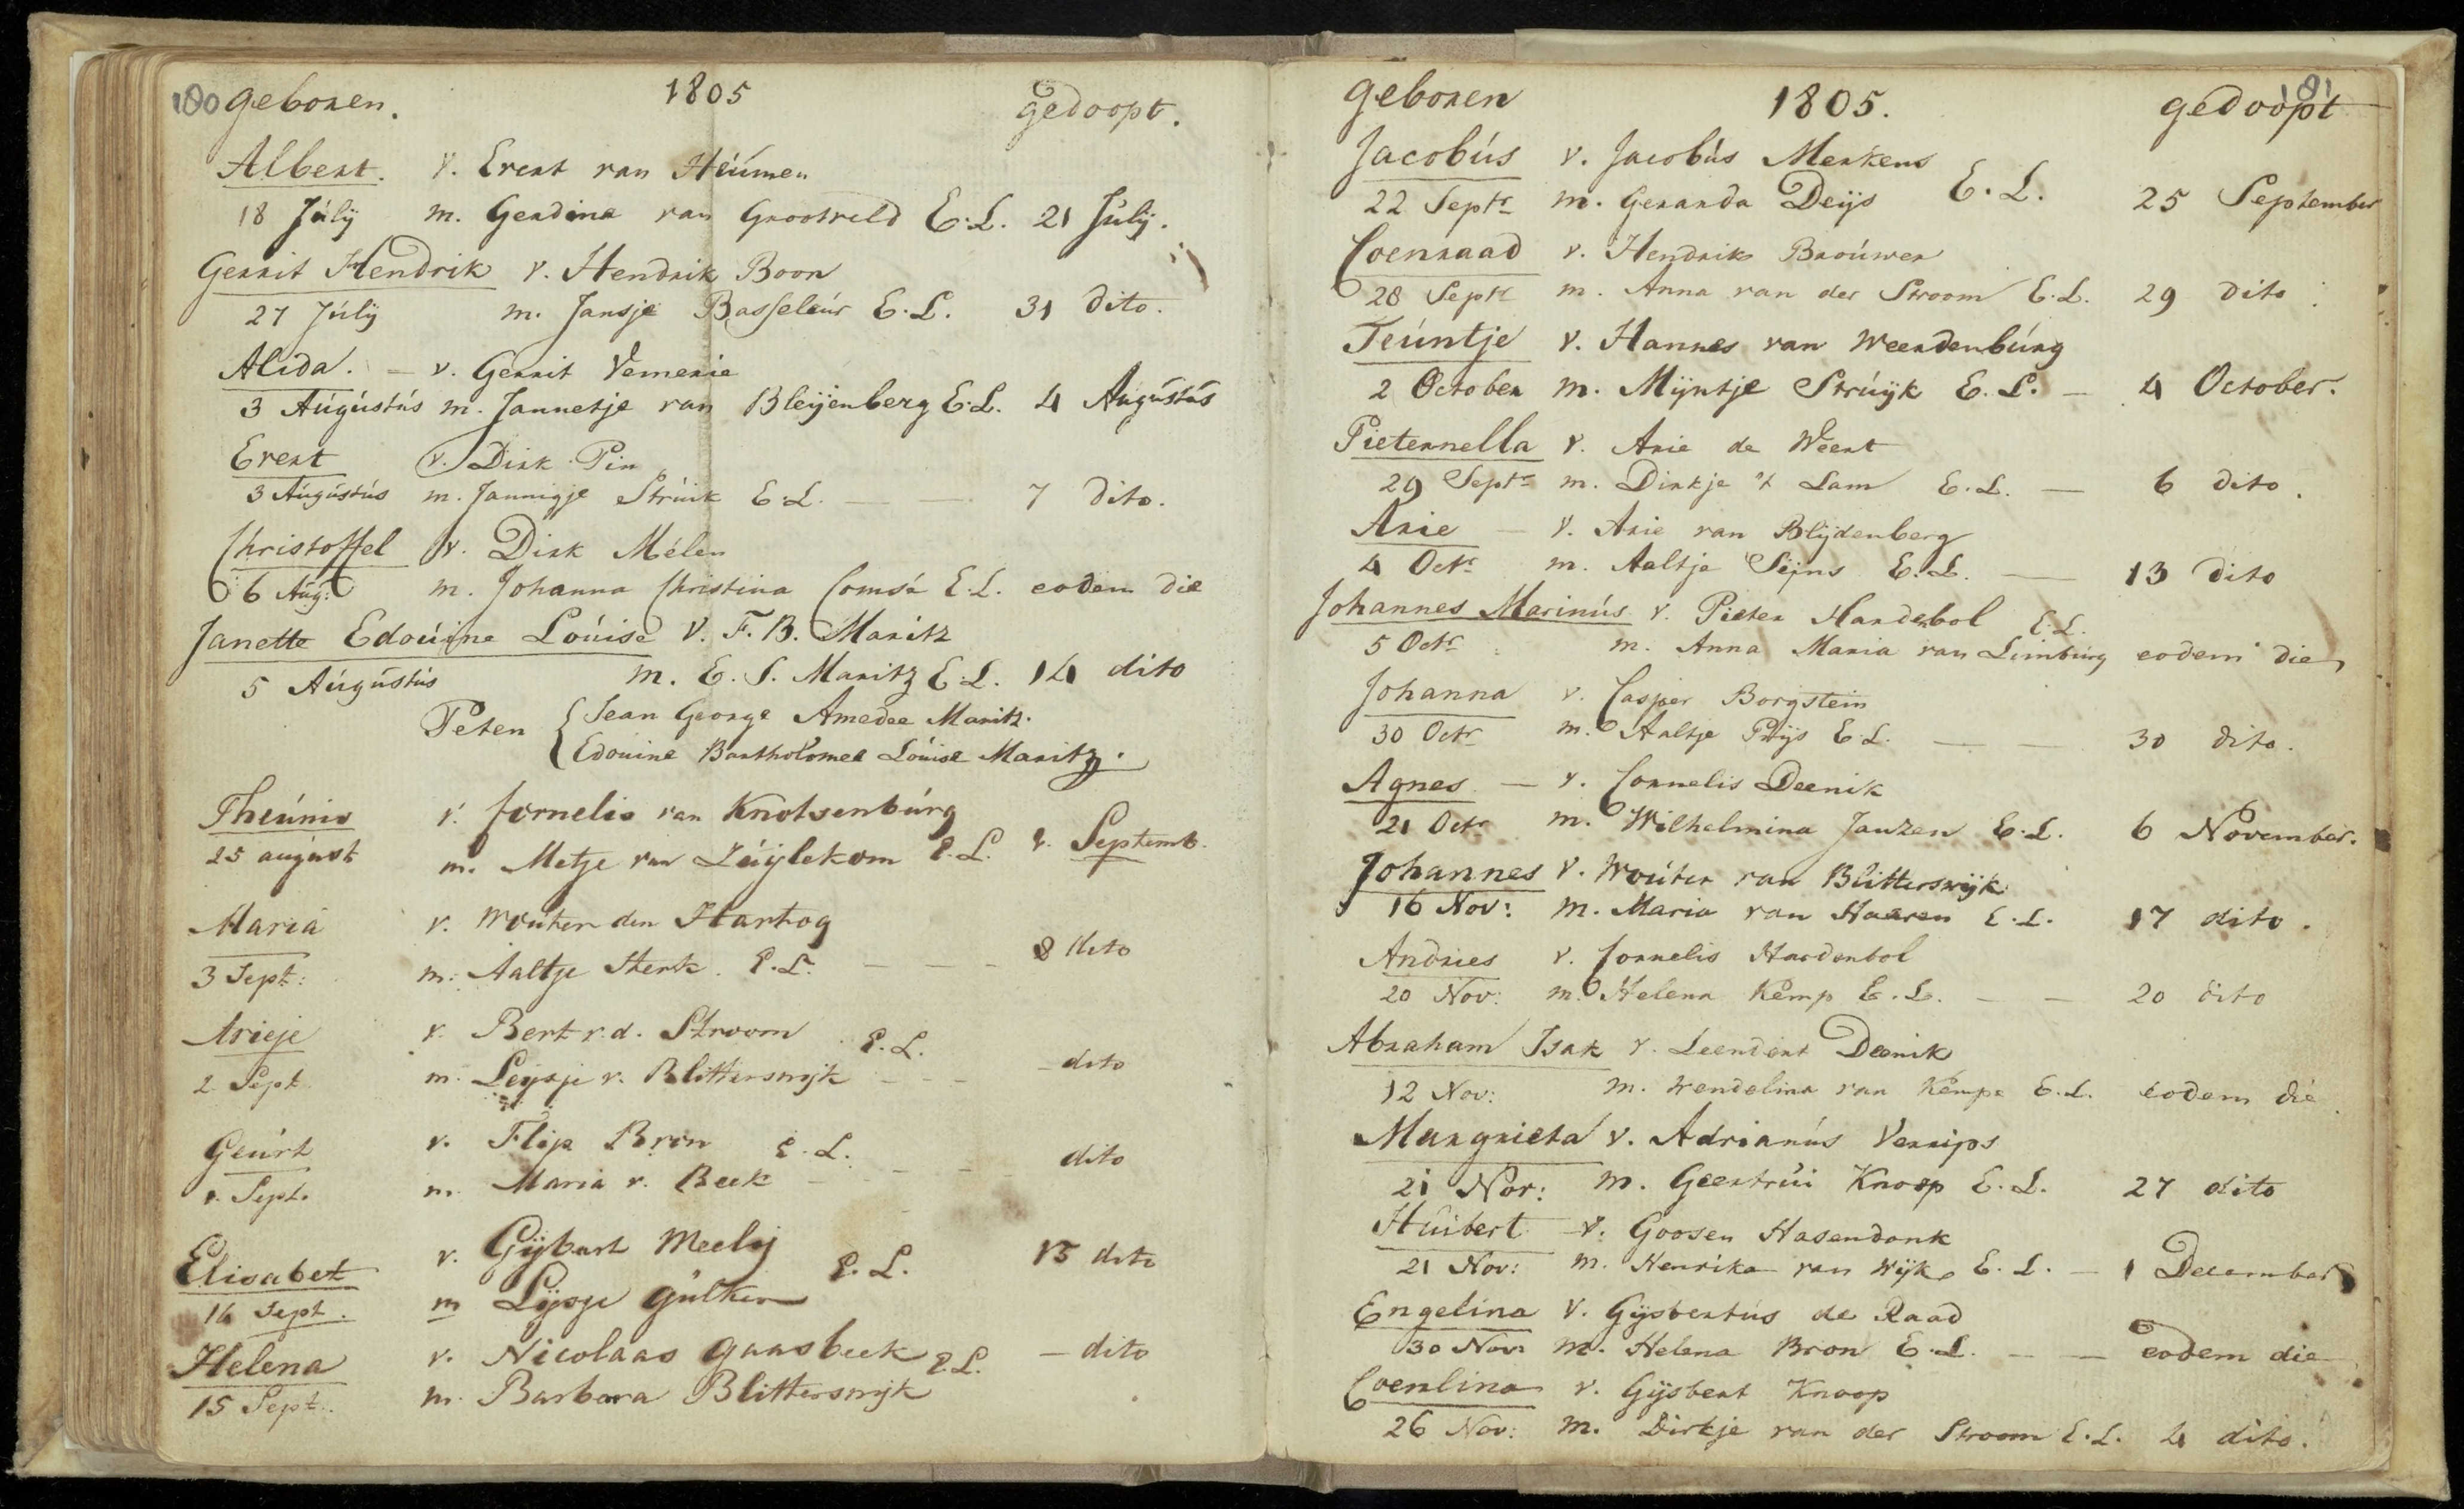 180 geboren. 1805 gedoopt.
Albert. v. Evert van Heúmen
18 Júlij m. Gerdina van Grootveld E.L. 21 Júlij.
Gerrit Hendrik v. Hendrik Boon
27 Júlij m. Jansje Basseleúr E.L. 31 dito.
Alida. - v. Gerrit Vemerie
3 Aúgústús m. Jannetje van Bleijenberg E.L. 4 Aúgústús
Evert v. Dirk Pin
3 Aúgústús m. Jannigje Strúik E.L. — — 7 dito.
Christoffel v. Dirk Mélen
6 Aúg: m. Johanna Christina E.L. eodem die
Janette Edoúine Loúise v. F. B. Maritz
5 Aúgústús m. E. S. Maritz E.L. 14 dito
Peten { Jean George Amedee Maritz.
Edoúine Bartholomee Loúise Maritz.
Theúnis v. Cornelis van Knotsenbúrg
25 aúgúst m. Metje van Zúijlekom E.L. 1. Septemb.
Maria v. Woúter den Hartog
3 Sept: m. Aaltje Sterk. E.L. — — — 8 dito
Arieje v. Bert v.d. Stroom E.L.
2 Sept. m. Leijsje v. Blitterswijk — — — dito
Geúrt v. Flip Bron E.L.
1. Sept. m. Maria v. Beek — — — dito
Elisabet v. Gijbert Meelij E.L. 15 dito
14 Sept. m Lijsje Gúlker
Helena v. Nicolaas Gaasbeek E.L. — dito
15 Sept. m. Barbara Blitterswijk
geboren 1805. gedoopt 181
Jacobús v. Jacobús Merkens E.L.
22 Septr m. Gerarda Deijs 25 September
Coenraad v. Hendrik Broúwer
28 Septr m. Anna van der Stroom E.L. 29 dito.
Teúntje v. Hannes van Weerdenbúrg
2 October m. Mijntje Strúijk E.L. — 4 October.
Pieternella v. Arie de Weert
29 Septr m. Dirkje 't Lam E.L. — 6 dito.
Arie — v. Arie van Blijdenberg
4 Octr m. Aaltje Sijns E.L. — 13 dito
Johannes Marinús v. Pieter Hardebol E.L.
5 Octr m. Anna Maria van Limbúrg eodem die
Johanna v. Casper Borgstein
30 Octr m. Aaltje Prijs E.L. — — 30 dito.
Agnes. — v. Cornelis Deenik
21 Octr m. Wilhelmina Janzen E.L. 6 November.
Johannes v. Woúter van Blitterswijk
16 Nov: m. Maria van Haaren E.L. 17 dito.
Andries v. Cornelis Hardenbol
20 Nov: m. Helena Kemp E.L. — — 20 dito
Abraham Isak v. Leendert Deenik
12 Nov: m. Wendelina van Kempe E.L. eodem die
Margrieta v. Adrianús Verrips
21 Nov: m. Geertrúi Knoop E.L. 27 dito
Húibert v. Goosen Hasendonk
21 Nov: m. Henrika van Wijk E.L. — 1 December
Engelina v. Gijsbertús de Raad
30 Nov: m. Helena Bron E.L. — — eodem die
Coenlina v. Gijsbert Knoop
26 Nov: m. Dirkje van der Stroom E.L. 4 dito.